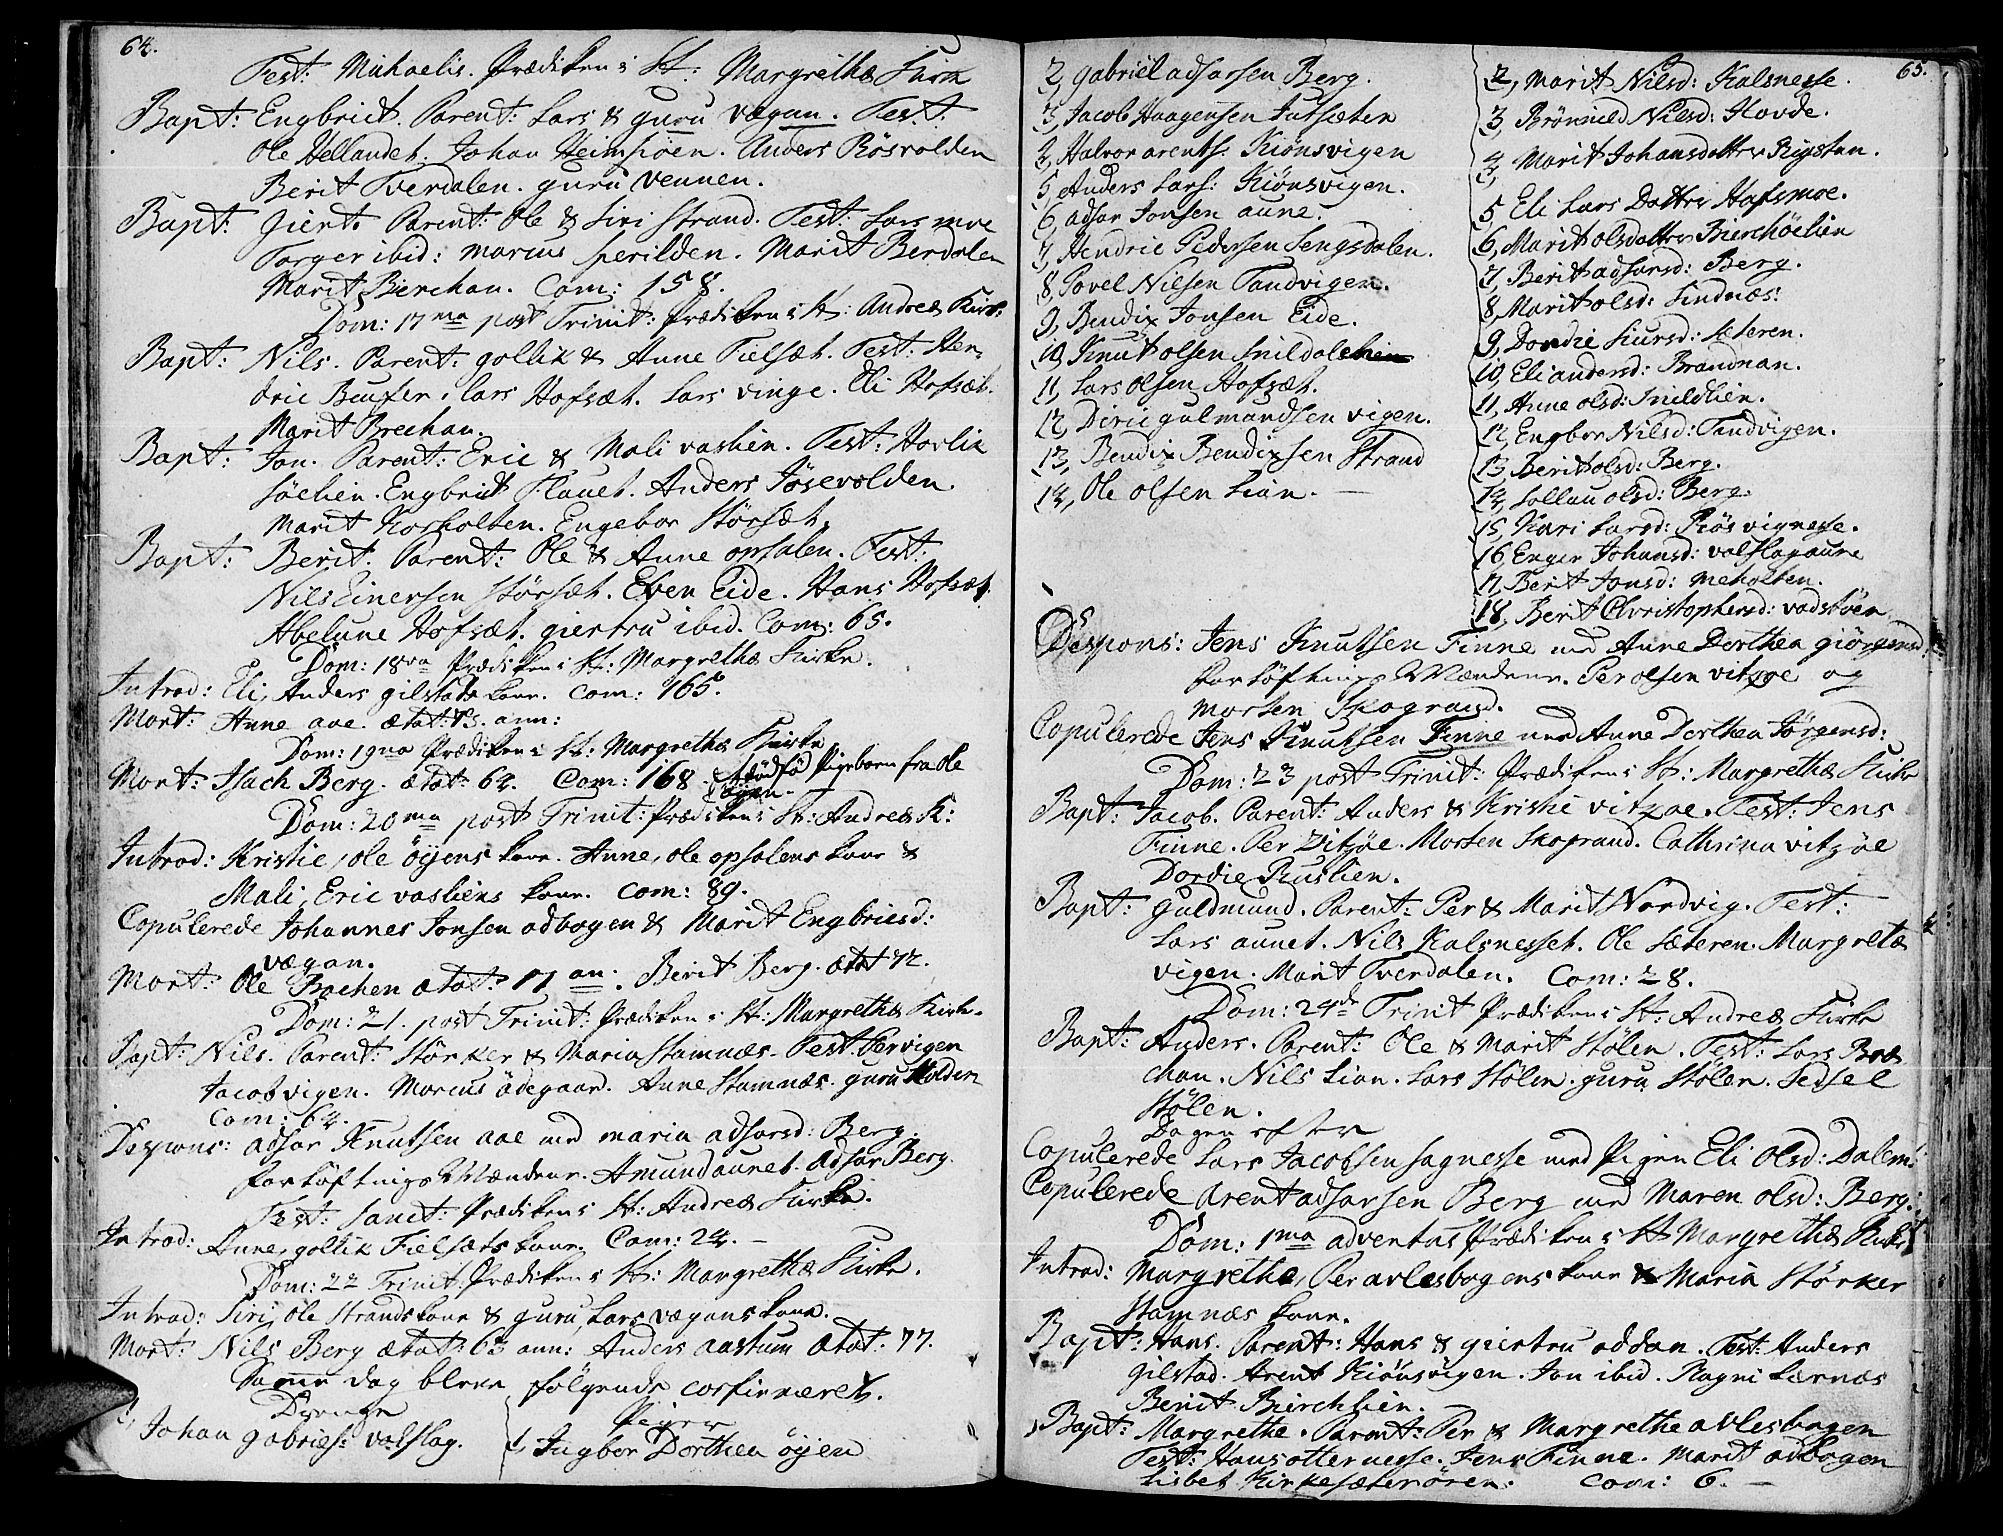 64.
Fest: Michaelis. Prædiken i St: Margrethæ Kirke
Bapt: Engbrict. Parent: Lars & guru vægan. Test:
Ole Hellandet. Johan Heimsiøen. Anders Røsvolden
Berit Tverdalen. guru Vennen.
Bapt: Giert. Parent: Ole & Siri Strand. Test: Lars moe
Torger ibid: marcus perilden. Marit Berdalen
Marit Birchan. Com: 158.
Dom: 17ma post Trinit: Prædiken i St: Andreæ Kirk:
Bapt: Nils. Parent: gollik & Anne Fielsæt. Test: Hen-
dric lars Hofsæt. Lars vinge. Eli Hofsæt.
Marit Brechan.
Bapt: Jon. Parent: Eric & Mali vaslien. Test:
Engbrict Anders Jøsevolden
Marit Korholten. Engebor Størsæt.
Bapt: Berit. Parent: Ole & Anne opsalen. Test:
Nils Einersen Størsæt. Even Eide. Hans Hofsæt
Abelune Hofsæt. giertru ibid. Com: 65.
Dom: 18va Prædiken i St: Margrethæ Kirke.
Introd: Eli, Anders gilstads kone. Com: 165.
Mort: Anne aae. ætat: 83. ann:
Dom: 19na Prædiken i St: Margrethæ Kirke
Mort: Isach Berg. ætat: 64. Com: 168. dødfød Pigebarn fra ole
øyen.
Dom: 20ma post Trinit: Prædiken i St: Andreæ K:
Introd: Kristie, ole øyens kone. Anne, ole opsalens kone &
Mali, Eric vasliens kone. Com: 89.
Copulerede Johannes Jonsen adbogen & Marit Engbricsd:
vægan.
Mort: Ole Bachen ætat: 11 an: Berit Berg. ætat 72.
Dom: 21. post Trinit: Prædiken i St: Margrethæ Kirke.
Bapt: Nils. Parent: Størker & Maria Stamnæs. Test: Per vigen
Jacob vigen. Marcus ødegaard. Anne Stamnæs. guru
Com: 64.
Despons: adsar Knutsen aae med maria adsarsd: Berg.
forløftnings Mændene. Amund aunet. Adsar Berg.
Fest: Sanct: Prædiken i St: Andreæ Kirke.
Introd: Anne, gollik Fielsæts kone. Com: 24.
Dom: 22 Trinit, Prædiken i St: Margrethæ Kirke.
Introd: Siri, ole Strands kone & guru, Lars vægans kone.
Mort: Nils Berg ætat: 63 ann: Anders aastum ætat: 77.
Samme dag bleve følgende confirmeret.
Drenge Piger
1, Johan gabriels: valslag. 1, Ingbor Dorthea øyen
2, gabriel adsarsen Berg.
3, Jacob Haagensen Jutsæter
4, Halvor arents: Kiønsvigen
5, Anders Lars: Kiønsvigen.
6, adsar Jonsen aune.
7, Hendric Pedersen Lengsdalen.
8, Povel Nilsen Tandvigen.
9, Bendix Jonsen Eide.
10, Knut olsen Snildal
11, Lars olsen Hofsæt.
12, Diric gulmandsen vigen.
13, Bendix Bendixsen Strand
14, Ole olsen Lian.
65.
2, Marit Nilsd: Kalsnesse.
3, Brønnild Nilsd: Hovde.
4, Marit Johansdatter Rigstan.
5, Eli Lars Datter Hafsmoe.
6, Marit olsdatter Bierchøelien
7, Berit adsarsd: Berg.
8, Marit olsd: Lindnæs:
9, Dordie Siursd: Sæteren.
10, Eli andersd: Brandnan.
11, Anne olsd: Snildlien.
12, Engbor Nilsd: Tandvigen.
13, Berit olsd: Berg.
14, Sollau olsd: Berg.
15, Kari Larsd: Røsvignesse.
16, Enger Johansd: valslagaune
17, Berit Jonsd: meholten.
18, Berit Christophersd: vadstøen.
Despons: Jens Knutsen Finne med Anne Dorthea giørgensd.
forløftnings Mændene. Per olsen vitzøe og
morten Skogrand.
Copulerede Jens Knutsen Finne med Anne Dorthea Jørgensd:
Dom: 23 post Trinit: Prædiken i St: Margrethæ Kirke
Bapt: Jacob. Parent: Anders & Kristie vitzøe. Test: Jens
Finne. Per Vitzøe. Morten Skogrand. Cathrina vitzøe
Dordie Ruslien.
Bapt: Guldmund. Parent: Per & Marit Nordvig. Test:
Lars aunet. Nils Kalsnesset. Ole Sæteren. Margretæ
vigen. Marit Tverdalen. Com: 28.
Dom: 24de Trinit Prædiken i St: Andreæ Kirke
Bapt: Anders. Parent: Ole & Marit Stølen. Test: Lars Bræ-
chan. Nils Lian. Lars Stølen. guru Stølen. Sedsel
Stølen.
Dagen efter
Copulerede Lars Jacobsen sagnesse med Pigen Eli Olsd: Dalem:
Copulerede arent adsarsen Berg med Maren olsd: Berg.
Dom: 1ma adventus Prædiken i St Margrethæ Kirke
Introd: Margrethe, Per avlesbogens kone & Maria Størker
Stamnæs kone.
Bapt: Hans. Parent: Hans & giertru oddan. Test: Anders
gilstad. Arent Kiønsvigen. Jon ibid. Ragni Lernæs
Berit Birchlien.
Bapt: Margrethe. Parent: Per & Margrethe avlesbogen
Test: Hans otternesse. Jens Finne. Marit adbogen
Lisbet Kirkesæterøren. Com: 6.